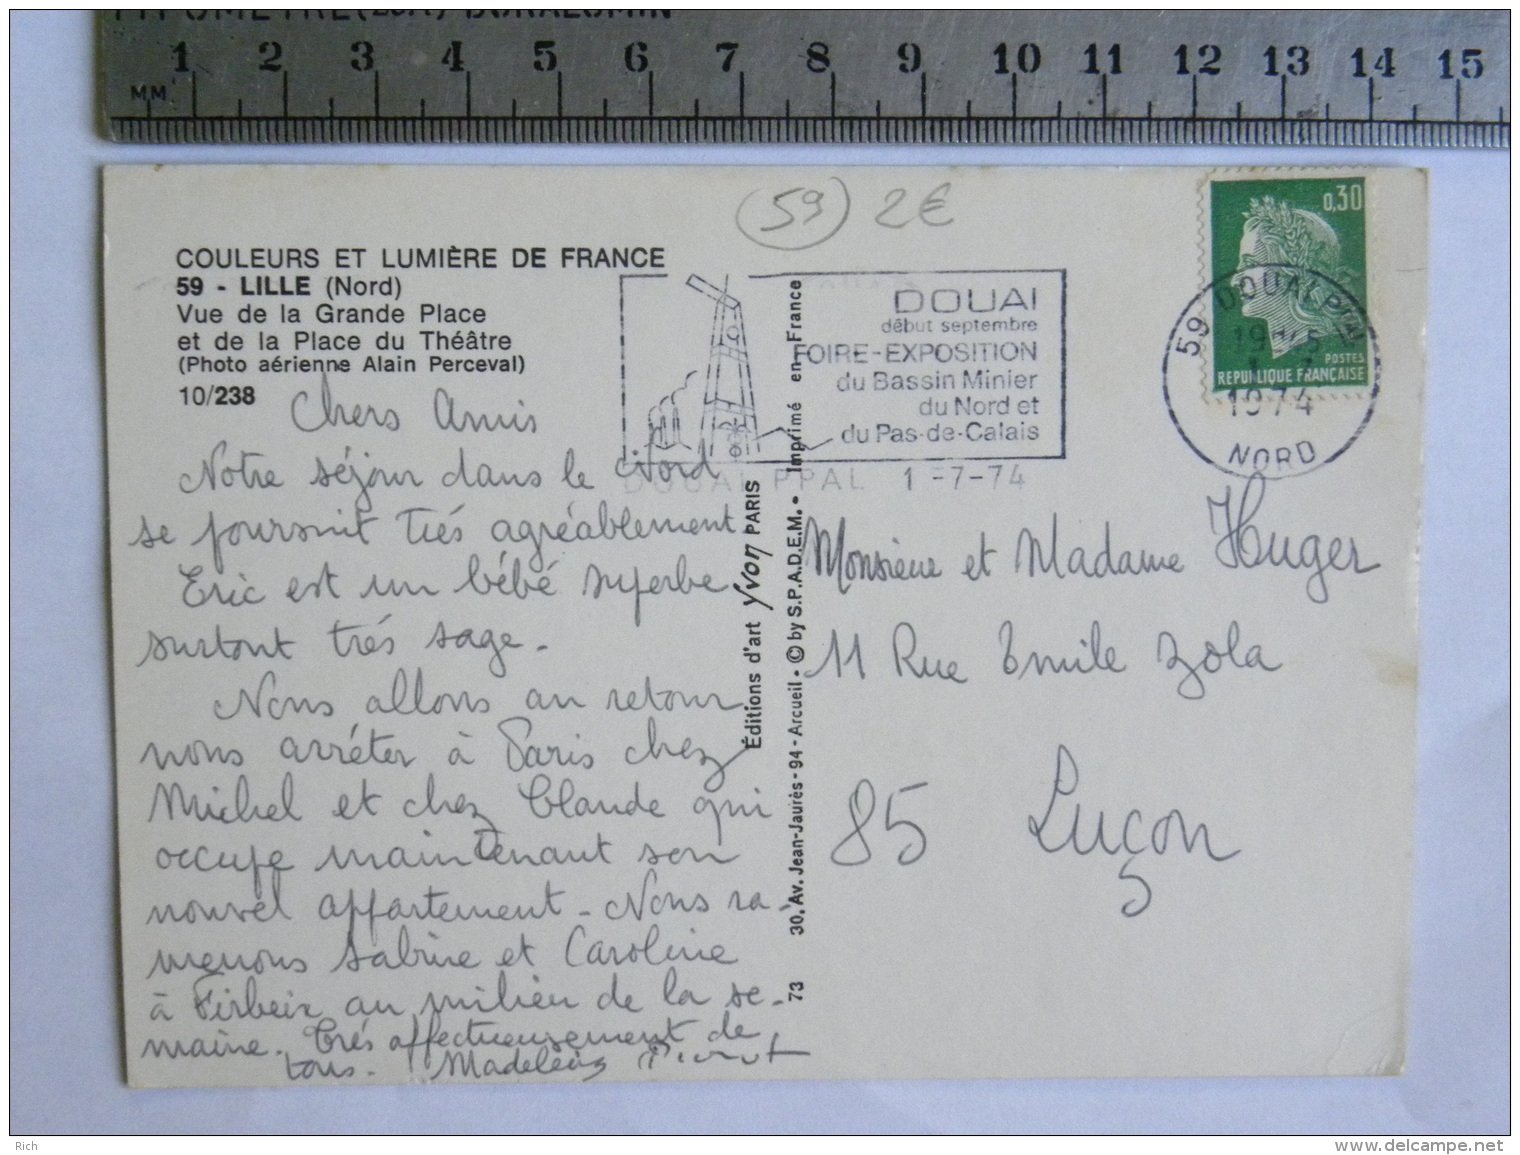 1 2 3 4 5 6 7 8 9 10 11 12 13 14 15
MM
59 2€
COULEURS ET LUMIÈRE DE FRANCE
59 - LILLE (Nord)
Vue de la Grande Place
et de la Place du Théâtre
(Photo aérienne Alain Perceval)
10/238
Chers Amis
Notre séjour dans le Nord
se poursuit très agréablement
Eric est un bébé superbe
surtout très sage.
Nous allons au retour
nous arrêter à Paris chez
Michel et chez Claude qui
occupe maintenant son
nouvel appartement - Nous ra-
menons Sabine et Caroline
à Firbeix au milieu de la se-
maine. Très affectueusement de
tous. Madeleine
DOUAI
début septembre
FOIRE-EXPOSITION
du Bassin Minier
du Nord et
du Pas-de-Calais
DOUAI PPAL 1-7-74
0,30
POSTES
REPUBLIQUE FRANÇAISE
59 DOUAI PPAL
1974
NORD
Éditions d'art Yvon PARIS
73 30, Av. Jean-Jaurès - 94 - Arcueil • © by S.P.A.D.E.M. • Imprimé en France
Monsieur et Madame Huger
11 Rue Emile Zola
85 Luçon
Rich
www.delcampe.net